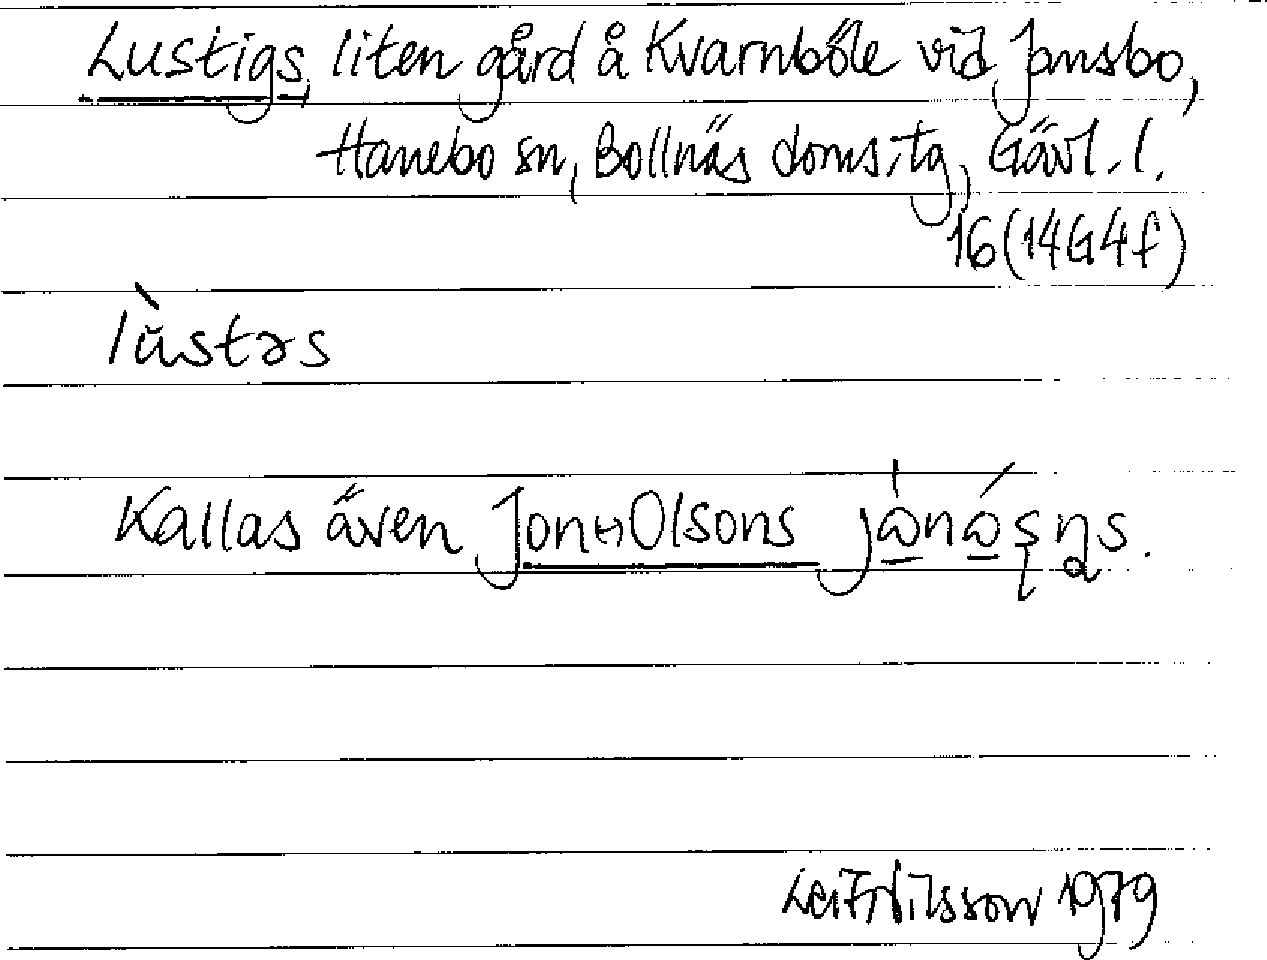 Lustigs, liten gård å Kvarnböle vid Jonsbo,
Hanebo sn, Bollnäs doms:tg, Gävl. l.
16(14G4f)
lùstəs
Kallas även Jon-Olsons jònósṇs.
Leif Nilsson 1979